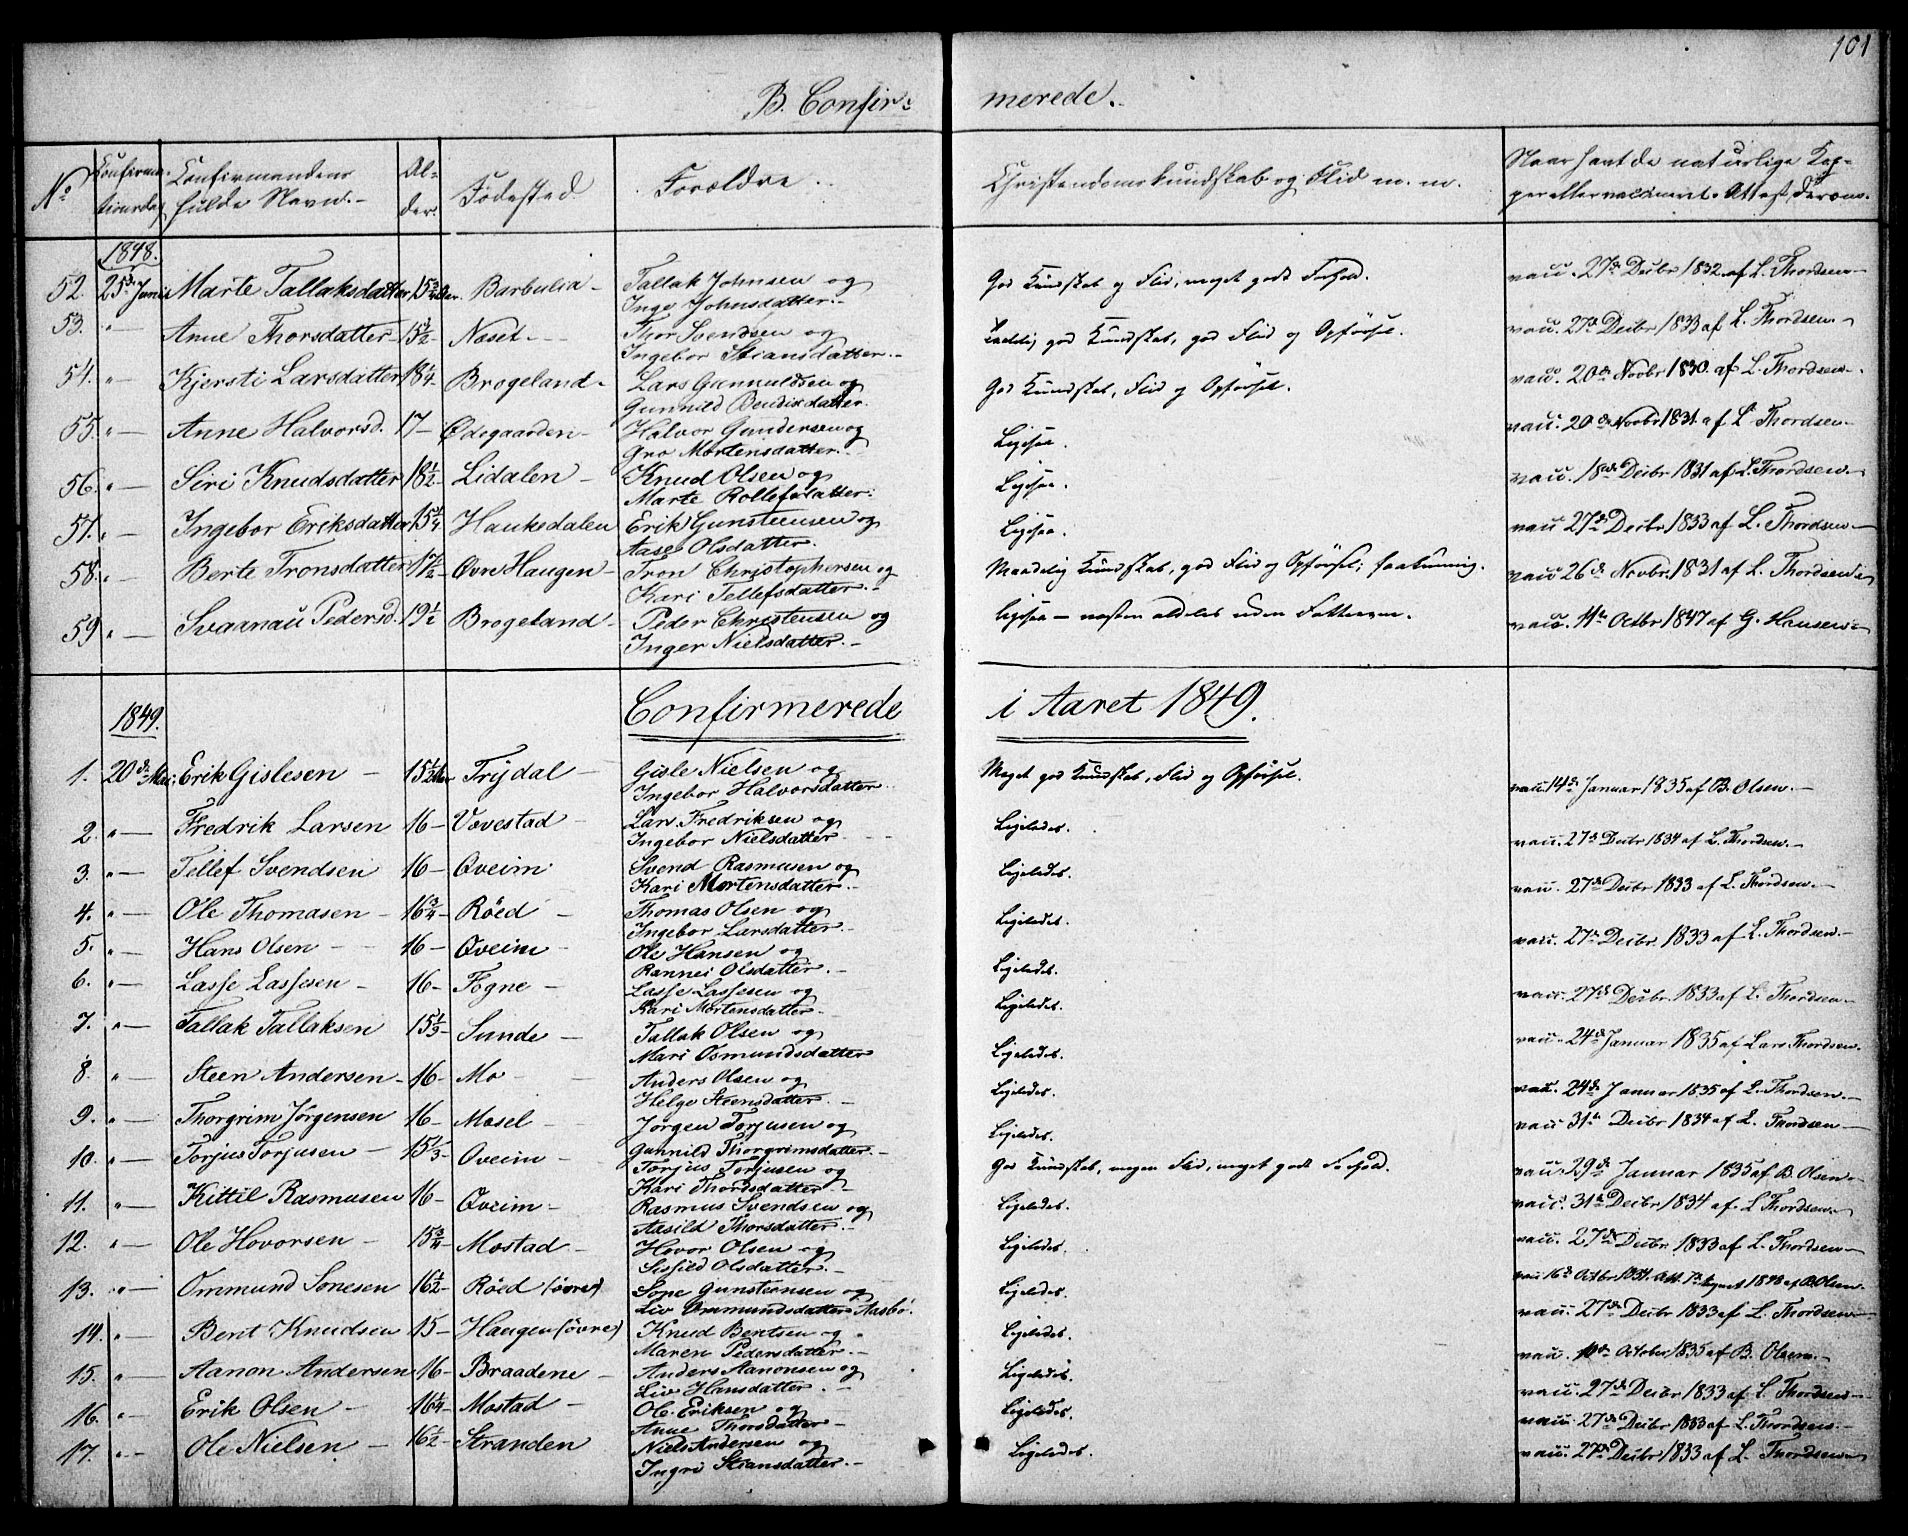 101
B. Confir- merede.
No Confirmationsdag Confirmandens fulde Navn. Alder. Fødested Forældre. Christendomskundskab og Flid m. m. Naar hant de naturlige Kopper eller vaccineret. Attest derom.
1848.
52. 25de Junii Marte Tallaksdatter 15 3/4 Aar. Barbulia Tallak Johnsen og God Kundskab og Flid, meget godt Forhold. vacc. 27de Decbr 1832 af L. Thordsen
Inge Johnsdatter.
53. " Anne Thorsdatter 15 1/2 Næset Thor Svendsen og god Kundskab, god Flid og Opførsel. vacc. 27de Decbr 1833 af L. Thordsen
Ingebor Stiansdatter.
54. " Kjersti Larsdatter 18 1/4 Brogeland Lars Gunnuldsen og God Kundskab, Flid og Opførsel. vacc. 20de Novbr 1830 af L. Thordsen.
Gunnild Bendixdatter.
55. " Anne Halvorsd. 17 Ødegaarden Halvor Gundersen og Ligesaa. vacc. 20de Novbr 1831 af L. Thordsen
Gro Mortensdatter.
56. " Siri Knudsdatter 18 1/2 Lidalen Knud Olsen og Ligesaa. vacc. 18de Decbr 1831 af L. Thordsen
Marte Rollefsdatter.
57. " Ingebor Eriksdatter 15 1/4 Haukedalen Erik Gunsteensen og Ligesaa. vacc. 27de Decbr 1833 af L. Thordsen
Aase Olsdatter.
58. " Berte Tronsdatter 17 1/2 Øvre Haugen Tron Christophersen og Maadelig Kundskab, god Flid og Opførsel; vacc 26de Novbr. 1831 af L. Thordsen
Kari Tellefsdatter.
59 " Svaanau Pedersd. 19 1/2 Brogeland Peder Christensen og Ligesaa – næsten aldeles uden vacc. 11te Octbr 1847 af G. Hansen
Inger Nielsdatter.
1849. Confirmerede i Aaret 1849.
1. 20de Mai Erik Gislesen 15 1/2 Aar Trydal Gisle Nielsen og Meget god Kundskab, Flid og Opførsel. vacc. 14de Januar 1835 af B. Olsen.
Ingebor Halvorsdatter.
2. " Fredrik Larsen 16 Vovestad Lars Fredriksen og Ligeledes. vacc. 27de Decbr 1834 af L. Thordsen.
Ingebor Nielsdatter
3. " Tellef Svendsen 16 Qveim Svend Rasmusen og Ligeledes. vacc. 27de Decbr 1833 af L. Thordsen.
Kari Mortensdatter.
4. " Ole Thomasen 16 3/4 Røed Thomas Olsen og Ligeledes. vacc. 27de Decbr 1833 af L. Thordsen.
Ingebor Larsdatter.
5. " Hans Olsen 16 Qveim Ole Hansen og Ligeledes.
Rannei Olsdatter.
6. " Lasse Lassesen 16 Fogne Lasse Lassesen og Ligeledes. vacc. 27de Decbr 1833 af L. Thordsen
Kari Mortensdatter.
7. " Tallak Tallaksen 15 1/3 Sunde Tallak Olsen og Ligeledes. vacc. 24de Januar 1835 af Lars Thordsen.
Mari Osmundsdatter
8. " Steen Andersen 16 Mo Anders Olsen og Ligeledes. vacc. 24de Januar 1835 af L. Thordsen.
Helge Steensdatter.
9. " Thorgrim Jørgensen 16 Mosel Jørgen Torjusen og Ligeledes. vacc 31te Decbr 1834 af L. Thordsen
Gunnild Thorgrimsdatter.
10. " Torjus Torjusen 15 1/3 Qveim Torjus Torjusen og God Kundskab, megen Flid, meget godt Forhold. vacc. 29de Januar 1835 af B. Olsen
Kari Thordsdatter.
11. " Kittil Rasmusen 16 Qveim Rasmus Svendsen og Ligeledes. vacc. 31te Decbr 1834 af L. Thordsen
Aasild Thorsdatter.
12. " Ole Hovorsen 15 3/4 Mostad Hovor Olsen og Ligeledes. vacc. 27de Decbr 1833 af L. Thordsen
Sissild Olsdatter.
13. " Ommund Sonesen 16 1/2 Røed (øvre) Sone Gunsteensen og Ligeledes. vacc 16de Octbr 1834. Att. 7de August 1848 af B. Olsen
Liv Ommundsdatter Aasbø.
14. " Bent Knudsen 15 Haugen (øvre) Knud Bentsen og Ligeledes. vacc. 27de Decbr 1833 af L. Thordsen
Maren Pedersdatter.
15. " Aanon Andersen 16 Braadene Anders Aanonsen og Ligeledes. vacc. 10de October 1835 af B. Olsen.
Liv Hansdatter.
16. " Erik Olsen 16 1/4 Mostad Ole Eriksen og Ligeledes. vacc. 27de Decbr 1833 af L. Thordsen
Anne Thorsdatter
vacc. 27de Decbr 1833 af L. Thordsen.
17. " Ole Nielsen 16 1/2 Stranden Niels Andersen og Ligeledes. vacc. 27de Decbr 1833 af L. Thordsen
Ingri Stiansdatter.